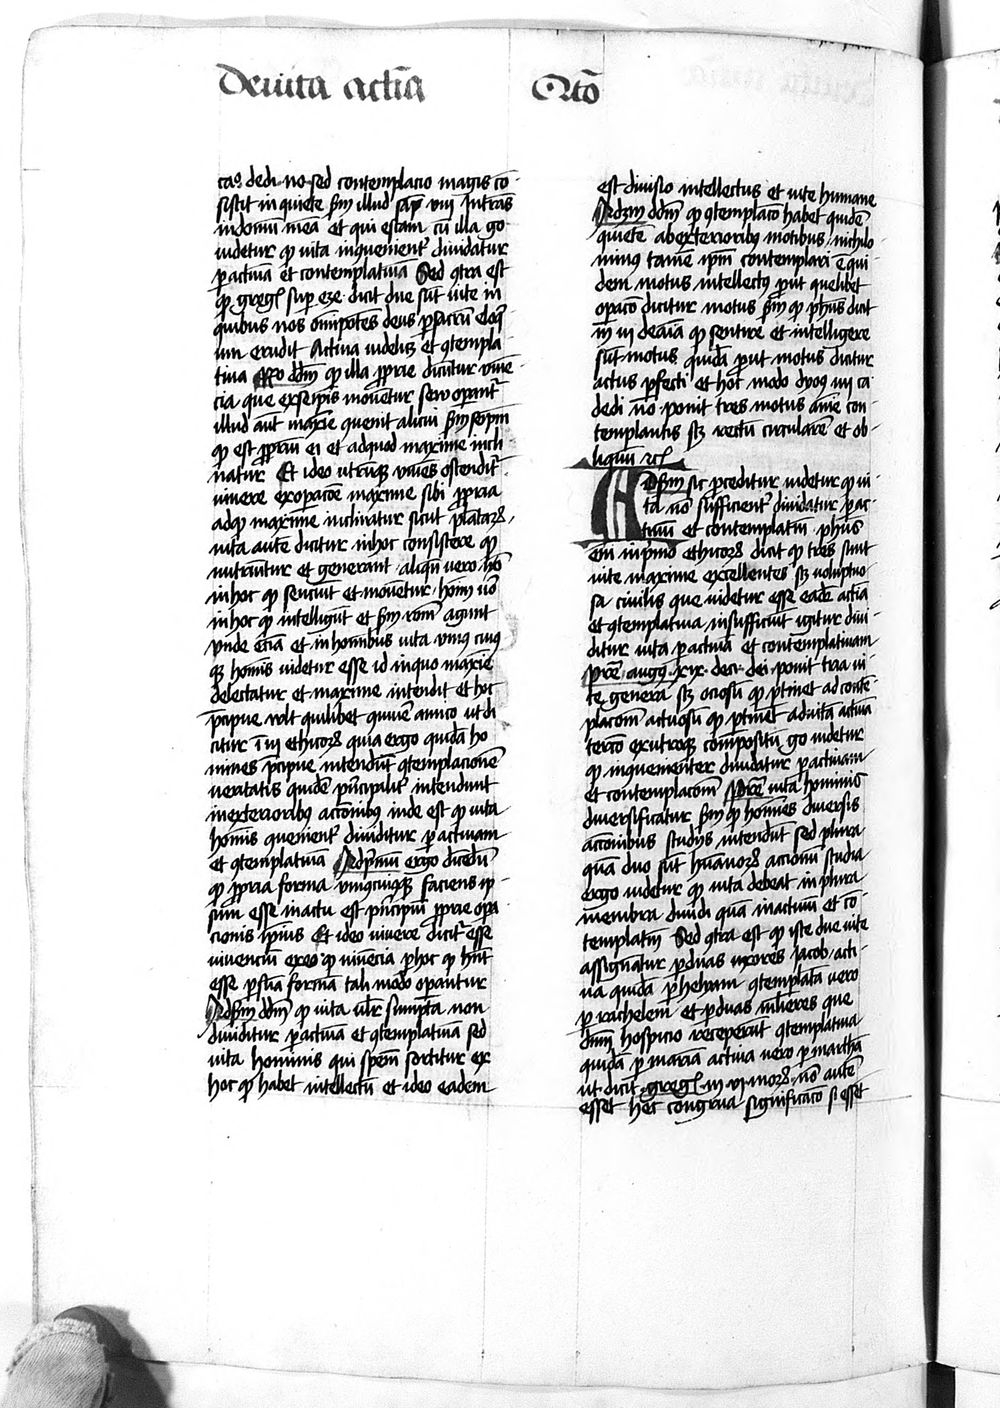 De vita actīa Q̄tō
ca° dedi no sed contemplacio magis cō
sistit in quiete scḓm illud sap̄ viii Intrās
in domū meā et qui escam cū illa go
uidetur qꝫ vita inquenient̄ diuidatur
ꝑ actiuā et contemplatiuā Sed ꝯtra est
qꝫ gregꝰ suꝑ eze dicit due sūt vite in
quibus nos om̄ipotēs deus ꝑ sacrū eloq̄
um erudit Actiua uidelicꝫ et ꝯtempla
tiua Rō ddm̄ qꝫ illa ꝓprie dicūtur viuē
cia que ex seip̄is mouētur seu opant̄
illud aut̄ maxīe ꝯuenit alicui scḓm seip̄m
qꝫ est ꝓpriū ei et ad quod maxime incli
natur Et ideo utrūqꝫ viuēs ostendit̄
viuere ex opacōe maxime sibi ꝓpria
ad qꝫ maxime inclinatur sicut plātarꝫ
vita autē dicitur in hoc consistere qꝫ
nutriūtur et generant aliquū vero
in hoc qꝫ senciūt et mouētur hoīm vō
in hoc qꝫ intelligūt et scḓm rōm agunt
vnde eciā et in hoībus vita vniꝰ cuiꝰ
qꝫ hoīnis uidetur esse id in quo maxīe
delectatur et maxime intendit et hoc
p̄cipue vult quilibet ꝯuiuē amico ut di
citur ī ix ethicorꝫ quia ergo quidā ho
mines p̄cipue intendūt ꝯtemplacionē
veritatis quidē p̄ncipalit̄ intendunt
in exterioribꝰ acōnibꝰ inde est qꝫ vita
hoīnis ꝯuenient̄ diuiditur ꝑ actiuam
et ꝯtemplatiuā Ad p̄mū ergo dicēdū
qꝫ ꝓpria forma vniꝰcuiꝰqꝫ faciens ip̄
sum esse in actu est p̄ncipiū ꝓprie opa
cionis ip̄ius Et ideo viuere dicit̄ esse
viuenciū ex eo qꝫ viuēcia ꝑ hoc qꝫ hn̄t
esse ꝑ suā formā tali modo opantur
Ad scḓm ddm̄ qꝫ vita vlr̄ sumpta non
diuiditur ꝑ actiuā et ꝯtemplatiuā sed
vita hominis qui spēm sortitur ex
hoc qꝫ habet intellectū et ideo eadem
est diuisio intellectus et vite humane
Ad 3m ddm̄ qꝫ ꝯtemplacō habet quidē
quietē ab exterioribꝰ motibus nichilo
minus tamē ip̄m contemplari ē qui
dem motus intellectꝰ ꝓut quelibet
opacō dicitur motus scḓm qꝫ ph̄us dicit
in iii de aīa qꝫ sentire et intelligere
sūt motus quidā ꝓut motus dicitur
actus ꝑfecti et hoc modo dyoꝰ iiii ca
de di nō ponit tres motus aīe con
templantis scꝫ rectū circularē et ob
liquū rcꝭ
Ad scḓm sic ꝓceditur uidetur qꝫ vi
ta nō sufficient̄ diuidatur ꝑ ac
tiuū et contemplatiū ph̄us
enī in p̄mo ethicorꝫ dicit qꝫ tres sunt
vite maxime excellentes scꝫ voluptuo
sa ciuilis que uidetur esse eadē actīa
et ꝯtemplatiua insufficiēt igitur diui
ditur vita ꝑ actiuā et contemplatiuam
p̄rē augꝰ xix de ci dei ponit tria vi
te genera scꝫ ociosū qꝫ ꝑtinet ad contē
placōm actuosū qꝫ ꝑtinet ad vitā actiuā
terciō ex utroqꝫ compositū go uidetur
qꝫ inquenienter diuidatur ꝑ actiuam
et contemplacōm p̄rē vita hominis
diuersificatur scḓm qꝫ hoīnes diuersis
accōnibus studijs intendūt sed plura
quā duo sūt hūanorꝫ accionū studia
ergo uidetur qꝫ vita debeat in plura
membra diuidi quā in actiuū et cō
templatiū Sed ꝯtra est qꝫ iste due vite
assignātur ꝑ duas uxores Jacob acti
ua quidā ꝑ helyam ꝯtemplatīa vero
ꝑ rachelem et ꝑ duas mlīeres que
dn̄m hospicio receperūt ꝯtemplatiua
quidā ꝑ mariā actiua vero ꝑ marthā
ut dicit gregꝰ in vi morꝫ nō autē
esset hec congrua significacō si esset